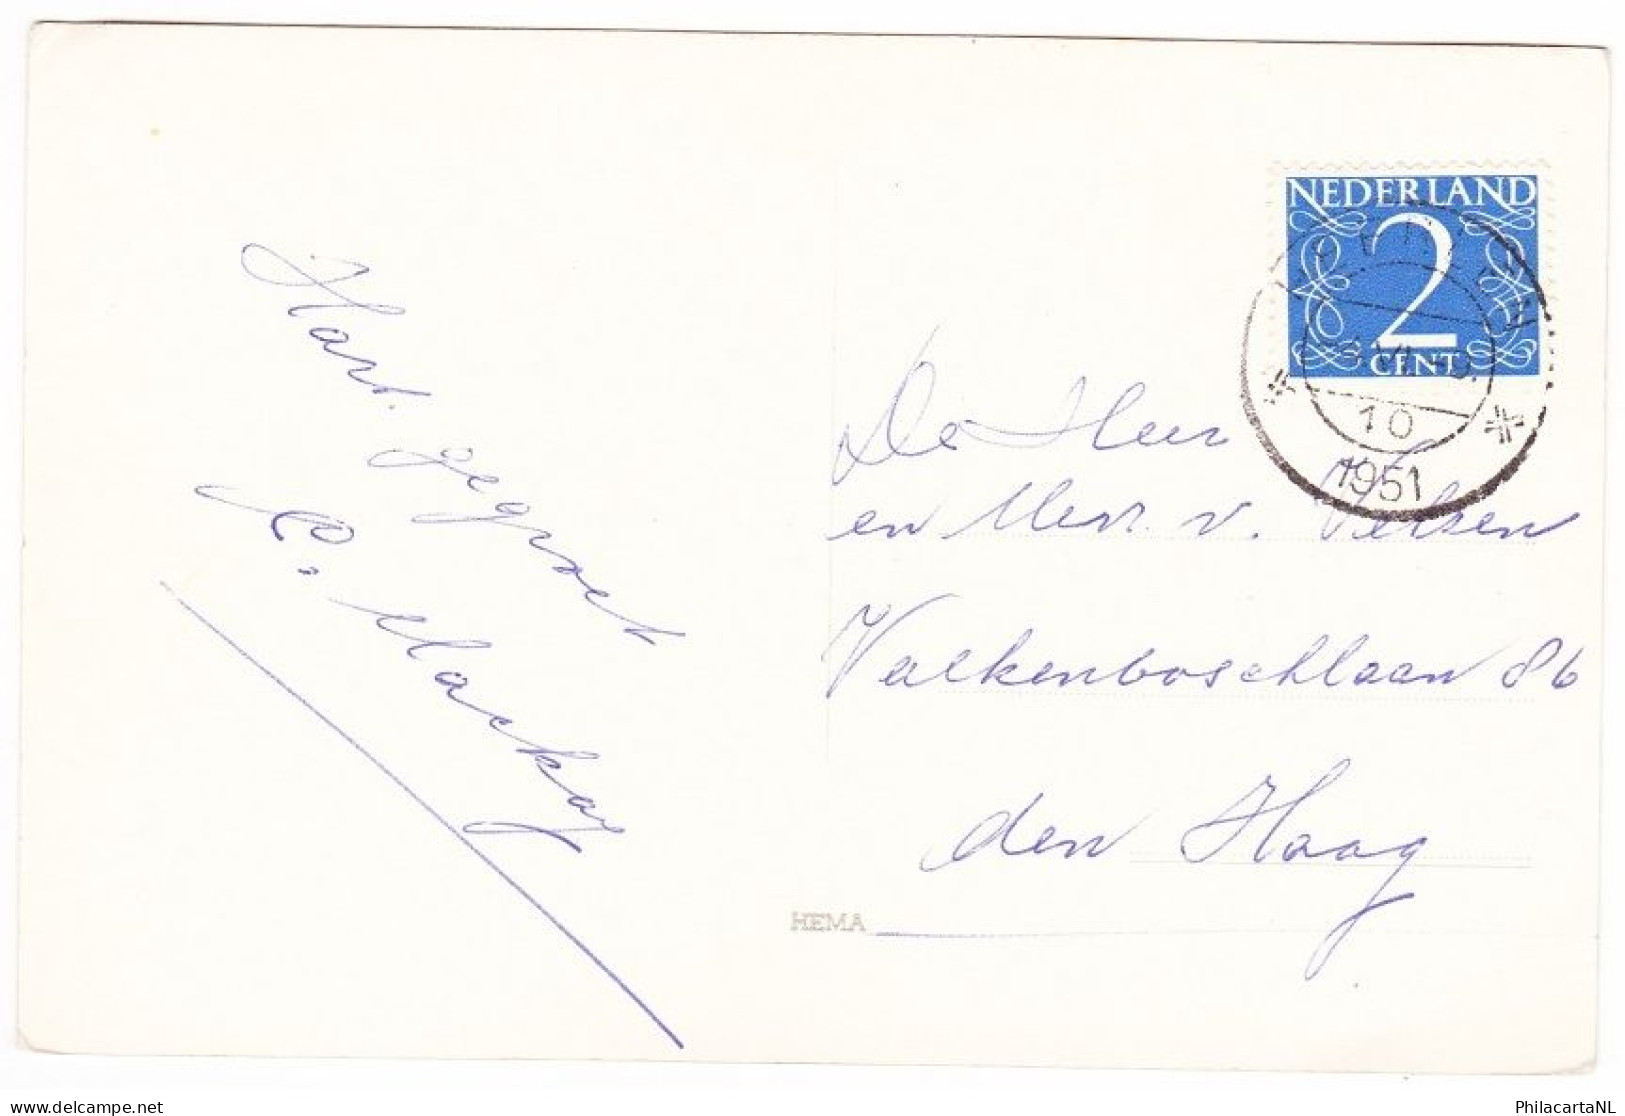 Hart. gegroet
C. Mackay
NEDERLAND
2
CENT
10
1951
De Heer
en Mevr. v. Velsen
Valkenboschlaan 86
den Haag
HEMA
PhilacartaNL